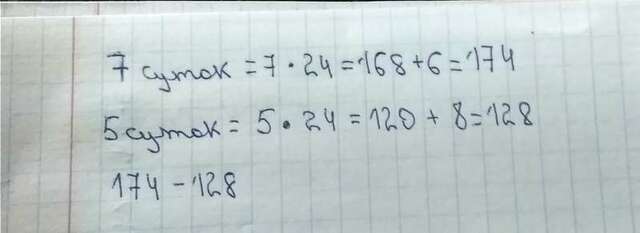 7 суток = 7 · 24 = 168 + 6 = 174
5 суток = 5 · 24 = 120 + 8 = 128
174 - 128